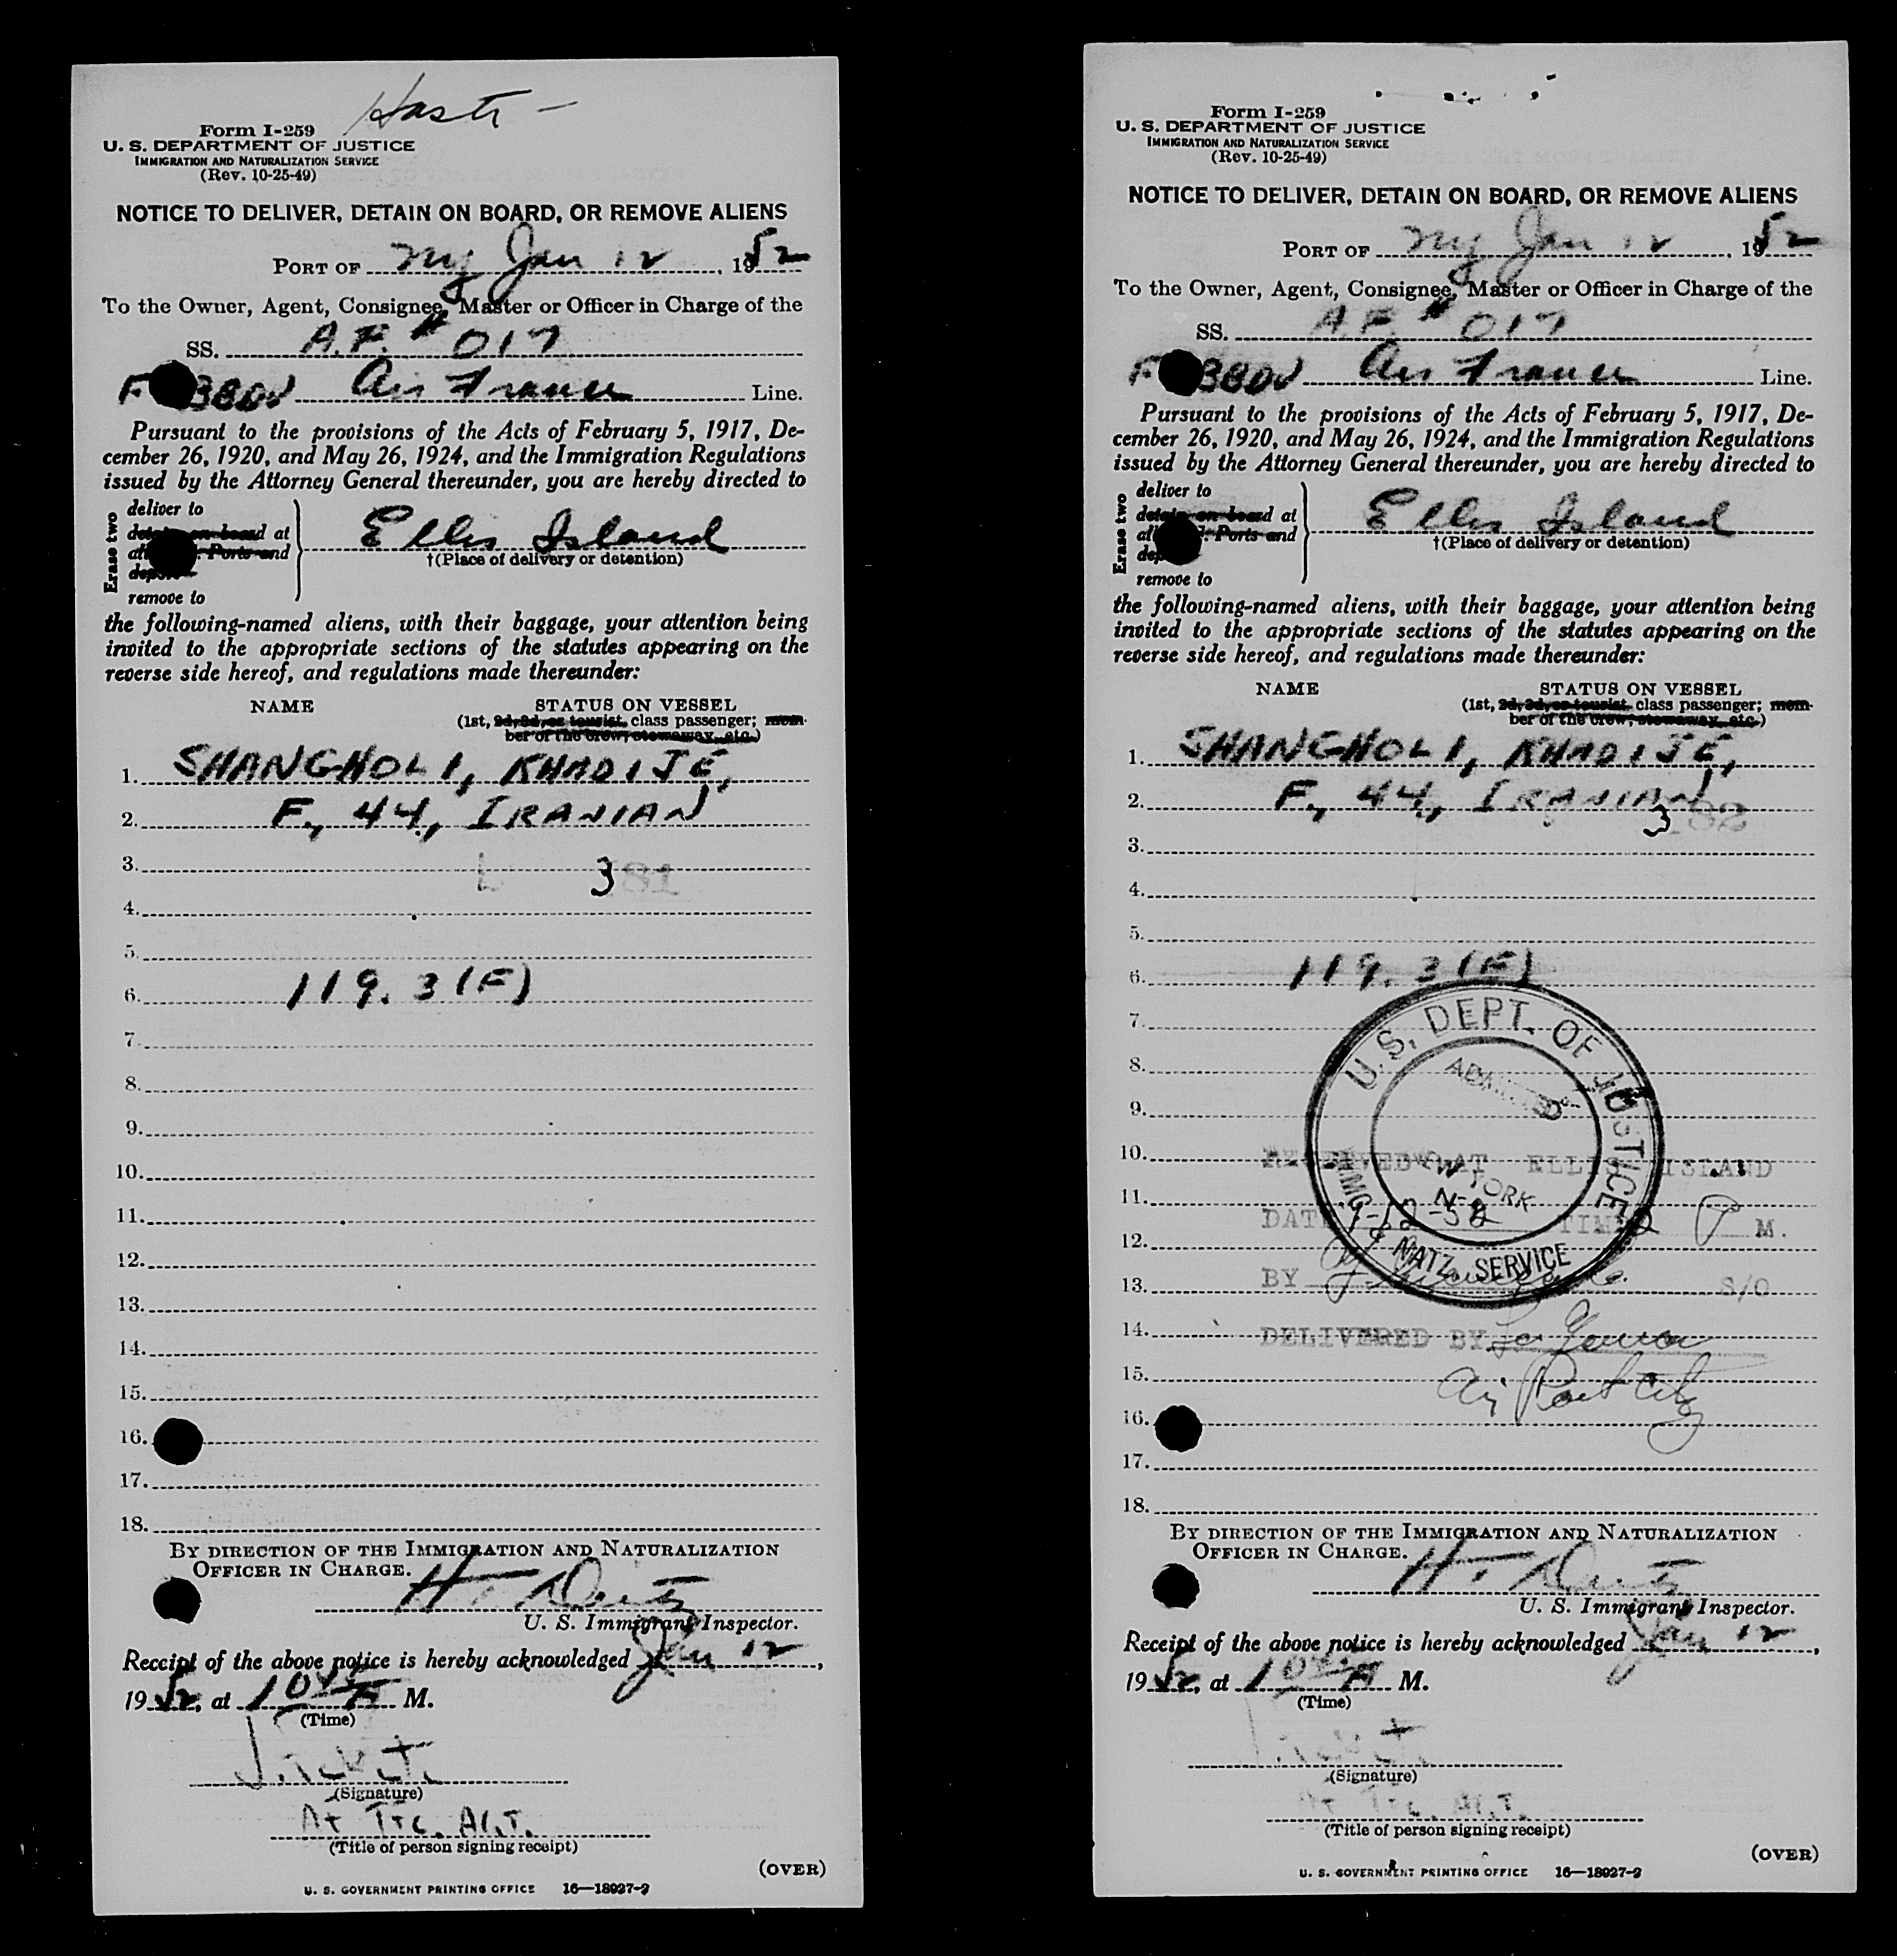 Form I-259
U. S. DEPARTMENT OF JUSTICE
IMMIGRATION AND NATURALIZATION SERVICE
(Rev. 10-25-49)
NOTICE TO DELIVER, DETAIN ON BOARD, OR REMOVE ALIENS
PORT OF NY Jan 12, 1952
To the Owner, Agent, Consignee, Master or Officer in Charge of the
SS. A.F. # 017
Air France Line.
Pursuant to the provisions of the Acts of February 5, 1917, De-
cember 26, 1920, and May 26, 1924, and the Immigration Regulations
issued by the Attorney General thereunder, you are hereby directed to
Erase two
deliver to
detain on board at
Ports and
remove to
Ellis Island
†(Place of delivery or detention)
the following-named aliens, with their baggage, your attention being
invited to the appropriate sections of the statutes appearing on the
reverse side hereof, and regulations made thereunder:
NAME STATUS ON VESSEL
(1st, 2d, 3d, or tourist, class passenger; mem-
ber of the crew, stowaway, etc.)
1. SHANGHOLI, KHADIJE,
2. F., 44, IRANIAN
3. 3 181
4.
5.
6. 119.3(F)
7.
8.
9.
10.
11.
12.
13.
14.
15.
16.
17.
18.
BY DIRECTION OF THE IMMIGRATION AND NATURALIZATION
OFFICER IN CHARGE.
U. S. Immigrant Inspector.
Receipt of the above notice is hereby acknowledged Jan 12,
1952, at M.
(Time)
(Signature)
(Title of person signing receipt)
(OVER)
U. S. GOVERNMENT PRINTING OFFICE 16—18927-2
Form I-259
U. S. DEPARTMENT OF JUSTICE
IMMIGRATION AND NATURALIZATION SERVICE
(Rev. 10-25-49)
NOTICE TO DELIVER, DETAIN ON BOARD, OR REMOVE ALIENS
PORT OF NY Jan 12, 1952
To the Owner, Agent, Consignee, Master or Officer in Charge of the
SS. A.F. # 017
Air France Line.
Pursuant to the provisions of the Acts of February 5, 1917, De-
cember 26, 1920, and May 26, 1924, and the Immigration Regulations
issued by the Attorney General thereunder, you are hereby directed to
Erase two
deliver to
detain on board at
Ports and
remove to
Ellis Island
†(Place of delivery or detention)
the following-named aliens, with their baggage, your attention being
invited to the appropriate sections of the statutes appearing on the
reverse side hereof, and regulations made thereunder:
NAME STATUS ON VESSEL
(1st, 2d, 3d, or tourist, class passenger; mem-
ber of the crew, stowaway, etc.)
1. SHANGHOLI, KHADIJE,
2. F., 44, IRANIAN
3 182
3.
4.
5.
6. 119.3(F)
7.
8.
9.
10.
11.
12.
13.
14.
15.
16.
17.
18.
U.S. DEPT. OF JUSTICE
IMMG. NATZ. SERVICE
ADMITTED
RECEIVED AT ELLIS ISLAND
DATE 1-12-52 TIME P M.
BY S/O
DELIVERED BY
Air Port City
BY DIRECTION OF THE IMMIGRATION AND NATURALIZATION
OFFICER IN CHARGE.
U. S. Immigrant Inspector.
Receipt of the above notice is hereby acknowledged Jan 12,
1952, at M.
(Time)
(Signature)
(Title of person signing receipt)
(OVER)
U. S. GOVERNMENT PRINTING OFFICE 16—18927-2